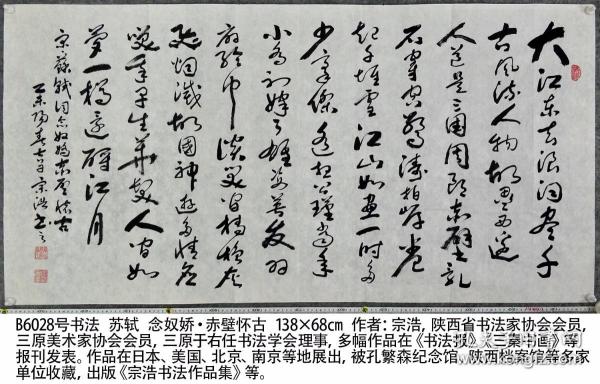 大江东去浪淘尽千
古风流人物故垒西边
人道是三国周郎赤壁乱
石穿空惊涛拍岸卷
起千堆雪江山如画一时多
少豪杰遥想公瑾当年
小乔初嫁了雄姿英发羽
扇纶巾谈笑间樯橹灰
飞烟灭故国神游多情应
笑我早生华发人间如
梦一樽还酹江月
宋苏轼词念奴娇赤壁怀古
宗浩书
B6028号书法 苏轼 念奴娇·赤壁怀古 138×68cm 作者:宗浩,陕西省书法家协会会员,
三原美术家协会会员,三原于右任书法学会理事,多幅作品在《书法报》《三秦书画》等
报刊发表。作品在日本、美国、北京、南京等地展出,被孔繁森纪念馆、陕西档案馆等多家
单位收藏,出版《宗浩书法作品集》等。